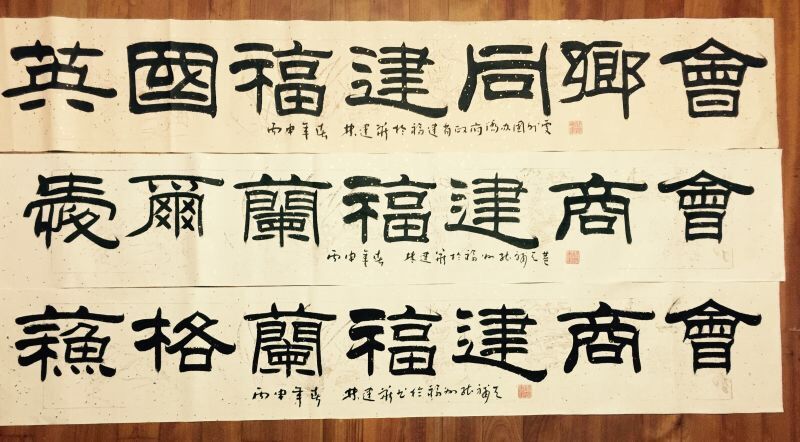 英國福建同鄉會
丙申年春 林建 於福建省政府
愛爾蘭福建商會
丙申年春 林建 於福州
蘇格蘭福建商會
丙申年春 林建 於福州